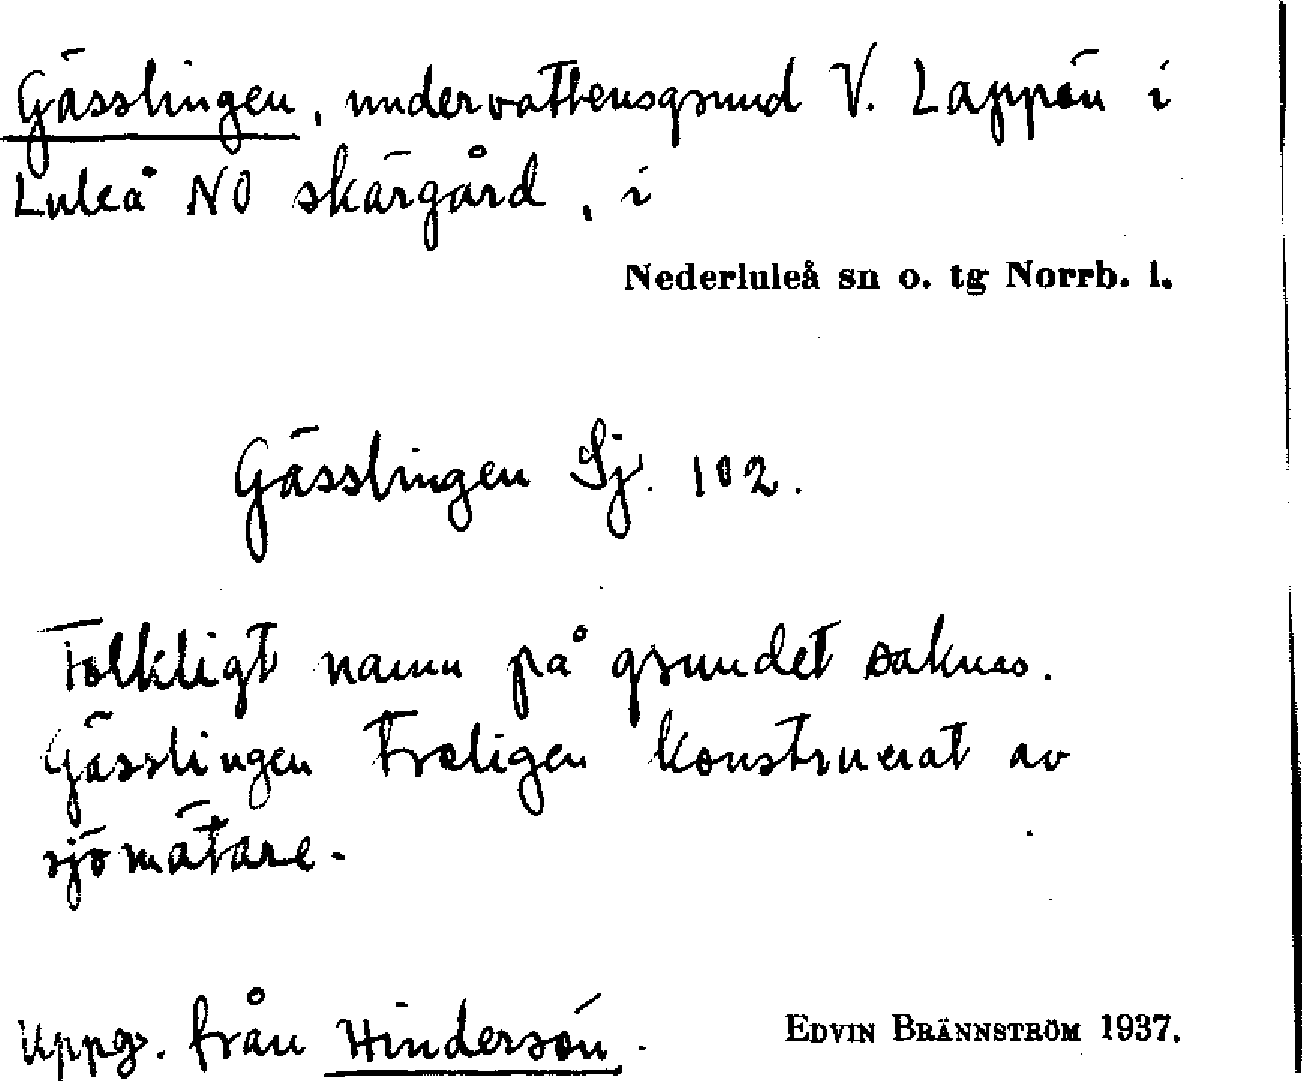 Gässlingen, undervattensgrund V. Lappön i
Luleå NO skärgård, i
Nederluleå sn o. tg Norrb. l.
Gässlingen Sj. 102.
Folkligt namn på grundet saknas.
Gässlingen troligen konstruerat av
sjömätare.
Uppg. från Hindersön.
EDVIN BRÄNNSTRÖM 1937.